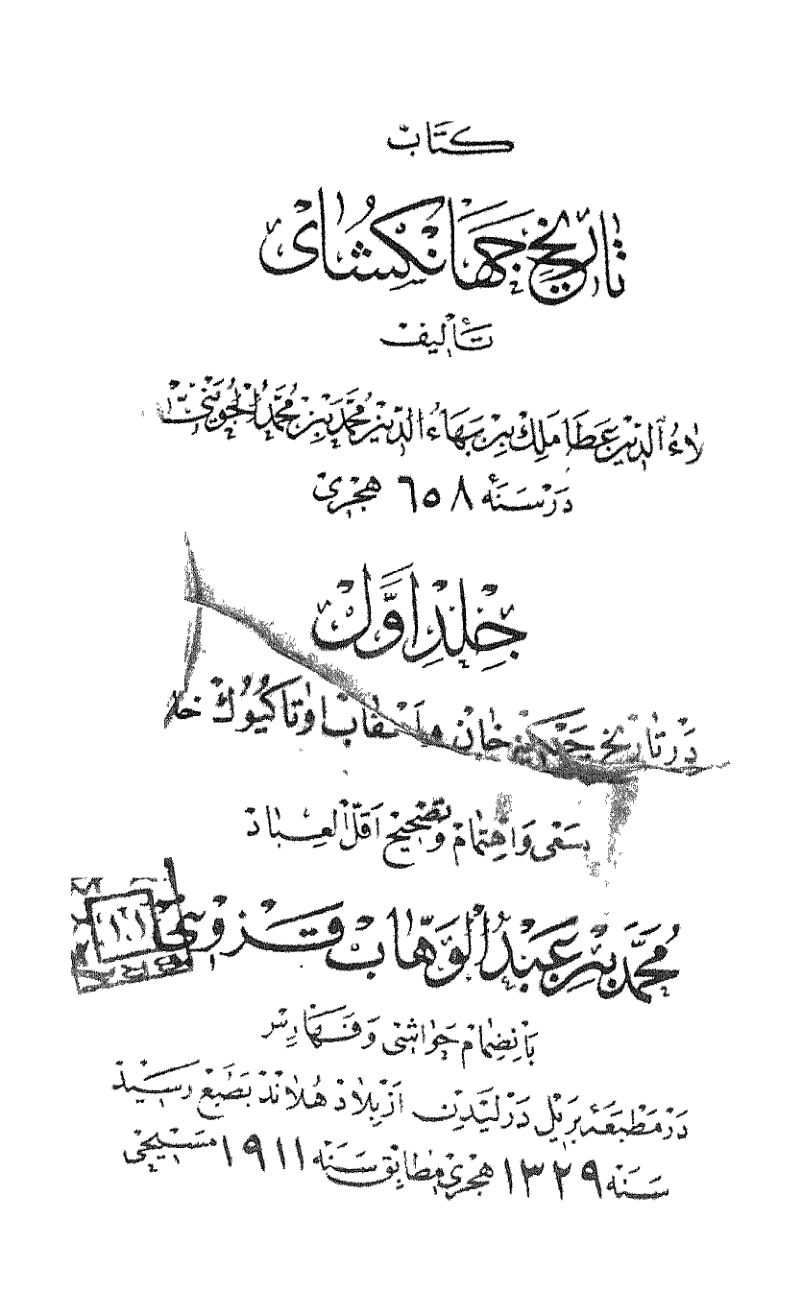 كتاب
تاریخ جهانکشای
تألیف
لاءُ الدّین عطا ملك بن بهاءُ الدّین محمّد بن محمّد الجوینی
در سنهٔ ٦٥٨ هجری
جلد اوّل
در تاریخ چنکیز خان و اعقاب او تا کیوك خا
بسعی و اهتمام و تصحیح اقلّ العباد
محمّد بن عبد الوهّاب قزوینی
بانضمام حواشی و فهارس
در مطبعهٔ بریل در لیدن از بلاد هلاند بطبع رسید
سنه ١٣٢٩ هجری مطابق سنه ١٩١١ مسیحی